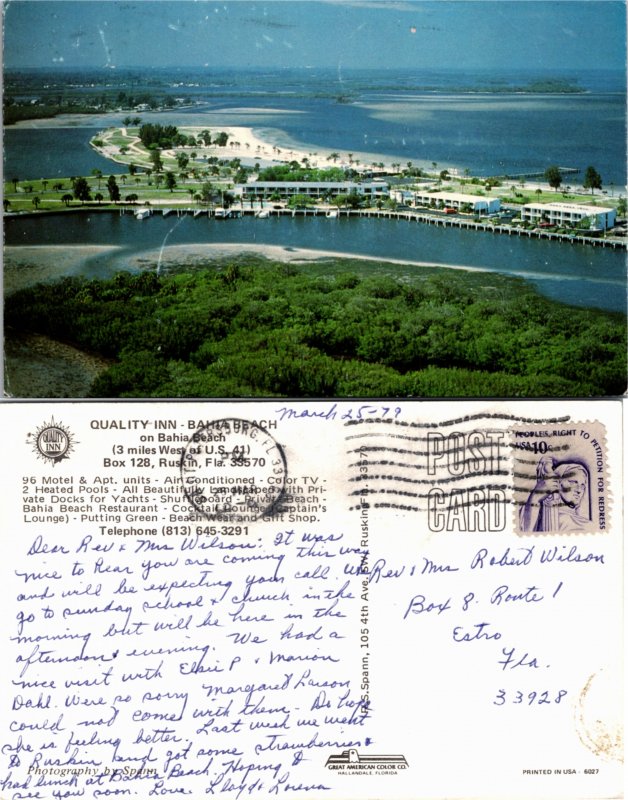 March 25-79
QUALITY INN - BAHIA BEACH
on Bahia Beach
(3 miles West of U.S. 41)
Box 128, Ruskin, Fla. 33570
QUALITY INN
96 Motel & Apt. units - Air Conditioned - Color TV -
2 Heated Pools - All Beautifully Landscaped with Pri-
vate Docks for Yachts - Shuffleboard - Private Beach -
Bahia Beach Restaurant - Cocktail Lounge (Captain's
Lounge) - Putting Green - Beach Wear and Gift Shop.
Telephone (813) 645-3291
Dear Rev & Mrs Wilson: It was
nice to hear you are coming this way
and will be expecting your call. We
go to sunday school & church in the
morning but will be here in the
afternoon & evening. We had a
nice visit with Elsie P & Marion
Dahl. Were so sorry Margaret Larson
could not come with them. Do hope
she is feeling better. Last week we went
to Ruskin and got some strawberries &
had lunch at Bahia Beach. Hoping to
see you soon. Love. Lloyd & Lorena
Photography by Spann
S. Spann, 105 4th Ave. SW, Ruskin, Fla. 33570
POST
CARD
PEOPLE'S RIGHT TO PETITION FOR REDRESS
USA 10c
Rev & Mrs Robert Wilson
Box 8. Route 1
Estro
Fla.
33928
GREAT AMERICAN COLOR CO.
HALLANDALE, FLORIDA
PRINTED IN USA - 6027